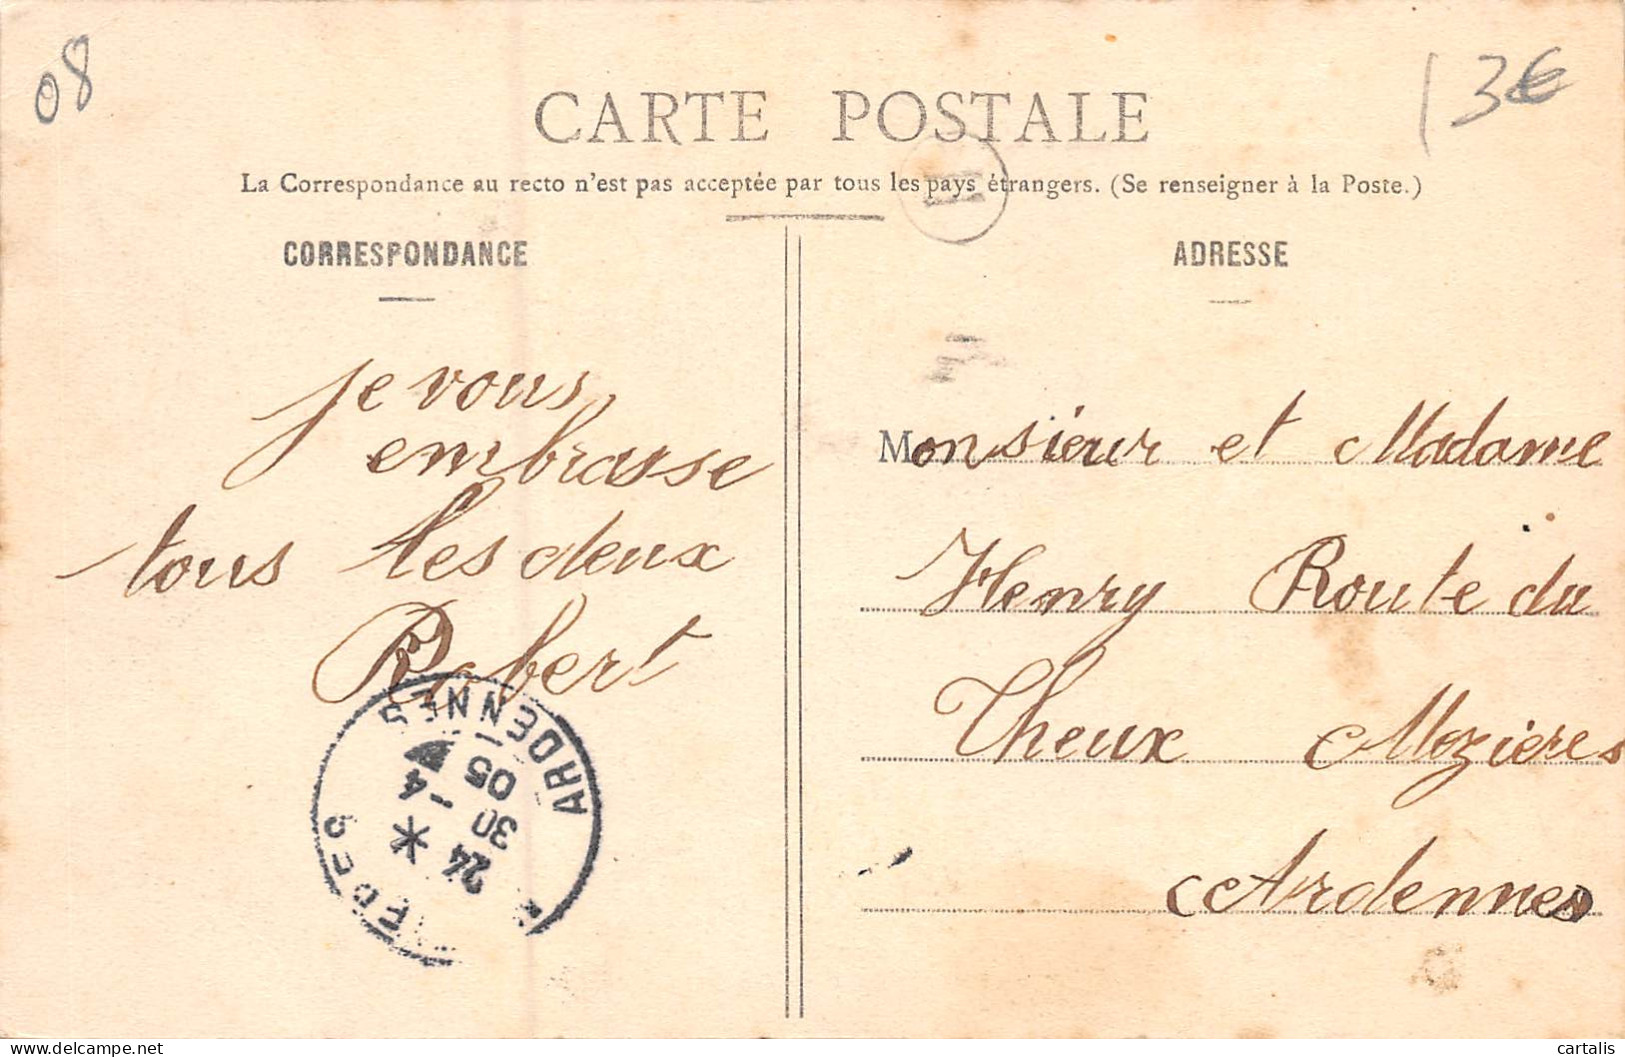 08
3€
CARTE POSTALE
La Correspondance au recto n'est pas acceptée par tous les pays étrangers. (Se renseigner à la Poste.)
CORRESPONDANCE
je vous
embrasse
tous les deux
Robert
ARDENNES
24
30 -4
05
ADRESSE
Monsieur et Madame
Henry Route du
Theux Mezieres
Ardennes
delcampe.net
cartalis